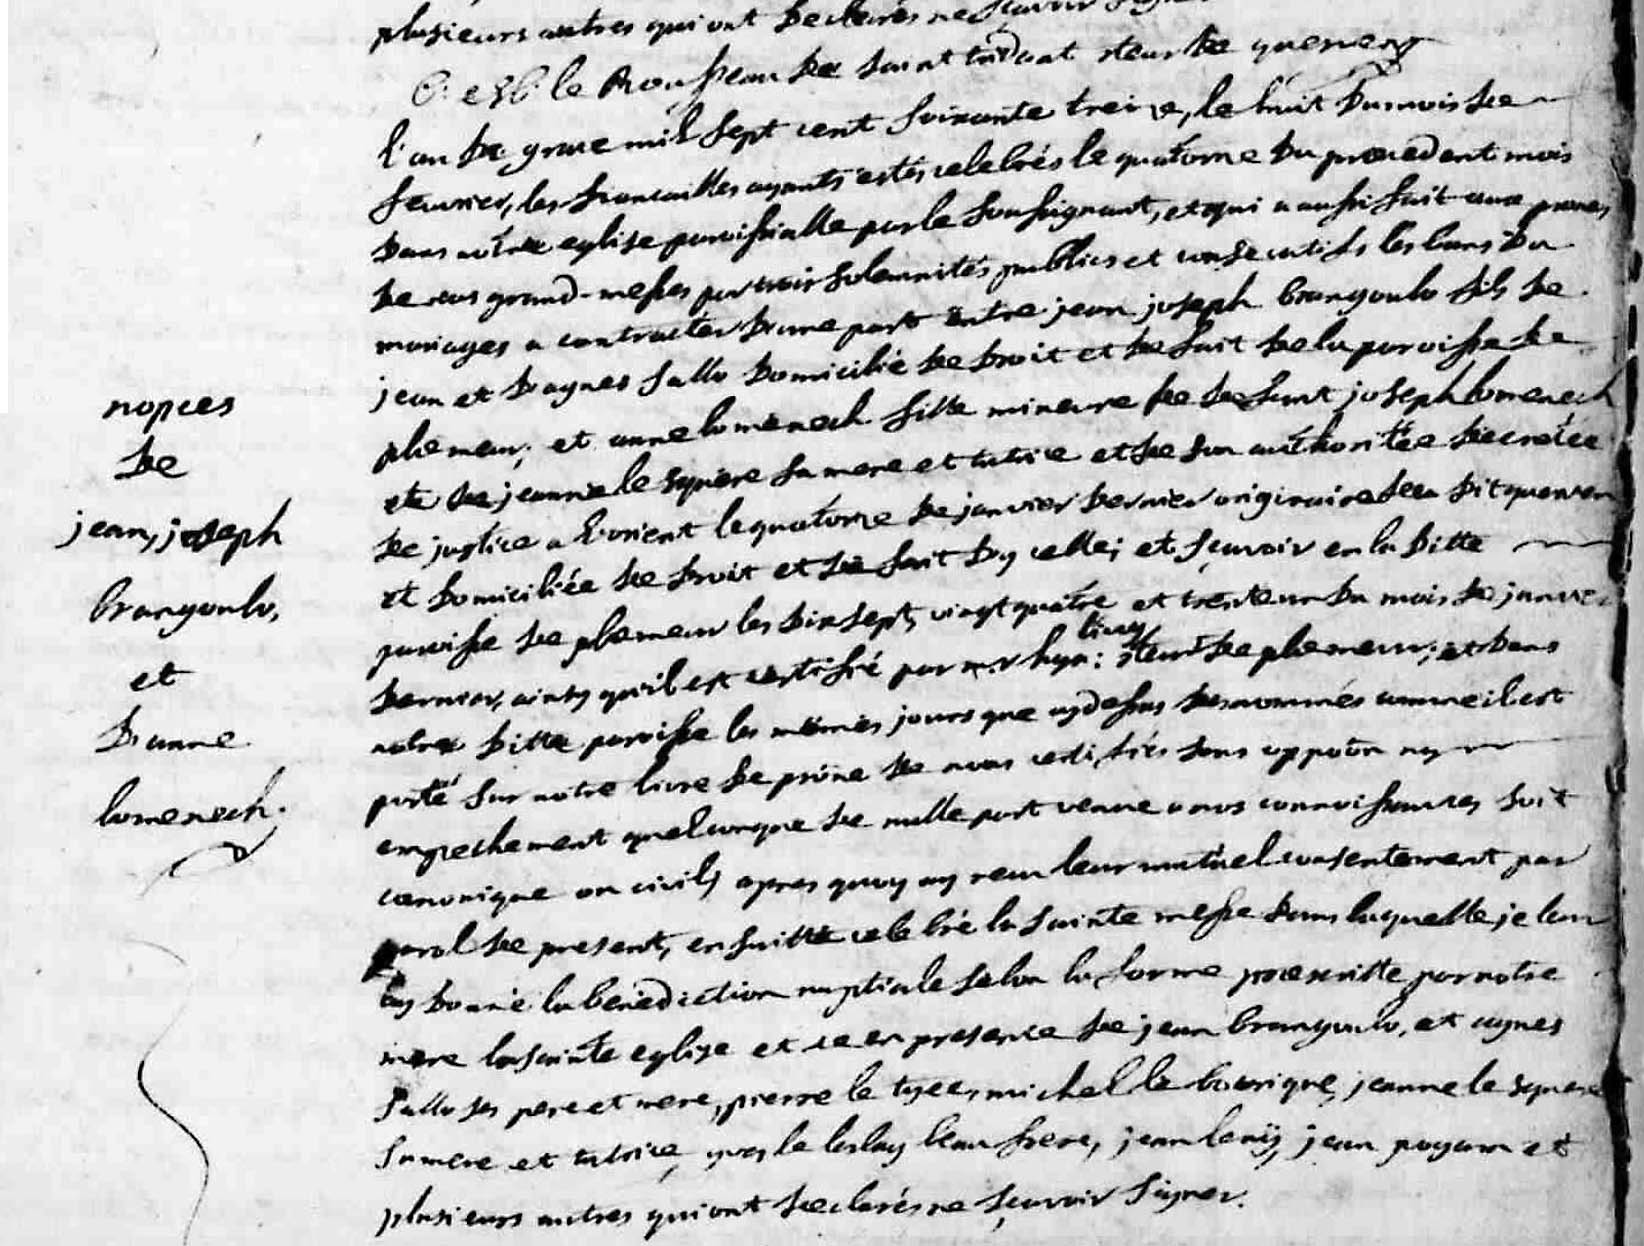 plusieurs autres qui ont declarés ne sçavoir signer
le Rousseau de saint recteur de quevene
l'an de grace mil sept cent soixante treize, le huit du mois de
fevrier, les fiancailles ayants estés celebrés le quatorze du precedent mois
dans nôtre eglise paroissialle par le soussignant, et qui a aussi fait aux prones
de nos grand-messes par trois solemnités publics et consecutifs les bans du
mariages a contracter d'une part entre jean joseph brangoulo fils de
jean et d'agnes sallo domicilié de droit et de fait de la paroisse de
plemeur; et anne lomenech fille mineure de defunt joseph lomenech
et de jeanne le squere sa mere et tutrice et de son authoritée decretée
de justice a l'orient le quatorze de janvier dernier originaire de ca dit queven
et domiciliée de droit et de fait dy celle; et sçavoir en la ditte
paroisse de plemeur les dix sept, vingt quatre et trente un du mois de janvier
dernier, ainsy qu'il est certifié par mr hya: livay recteur de plemeur; et dans
notre ditte paroisse les mêmes jours que cy dessus denommés comme il est
porté sur notre livre de prône de nous certifiés sans oppôon ny
empechement quelconque de nulle part venue a nos connoissances soit
canonique ou civils apres quoy ay reçu leur mutuel consentement par
parol de present, ensuitte celebré la sainte messe dans laquelle je leur
ay donné la benediction nuptiale selon la forme prescritte par notre
mere la sainte eglise et ce en presence de jean brangoulo, et agnes
sallo ses pere et mere, pierre le michel le jeanne le squere
sa mere et tutrice, yves le leslay beau frere, jean jean poyan et
plusieurs autres qui ont declarés ne sçavoir signer.
nopces
de
jean, joseph
brangoulo,
et
d'anne
lomenech.